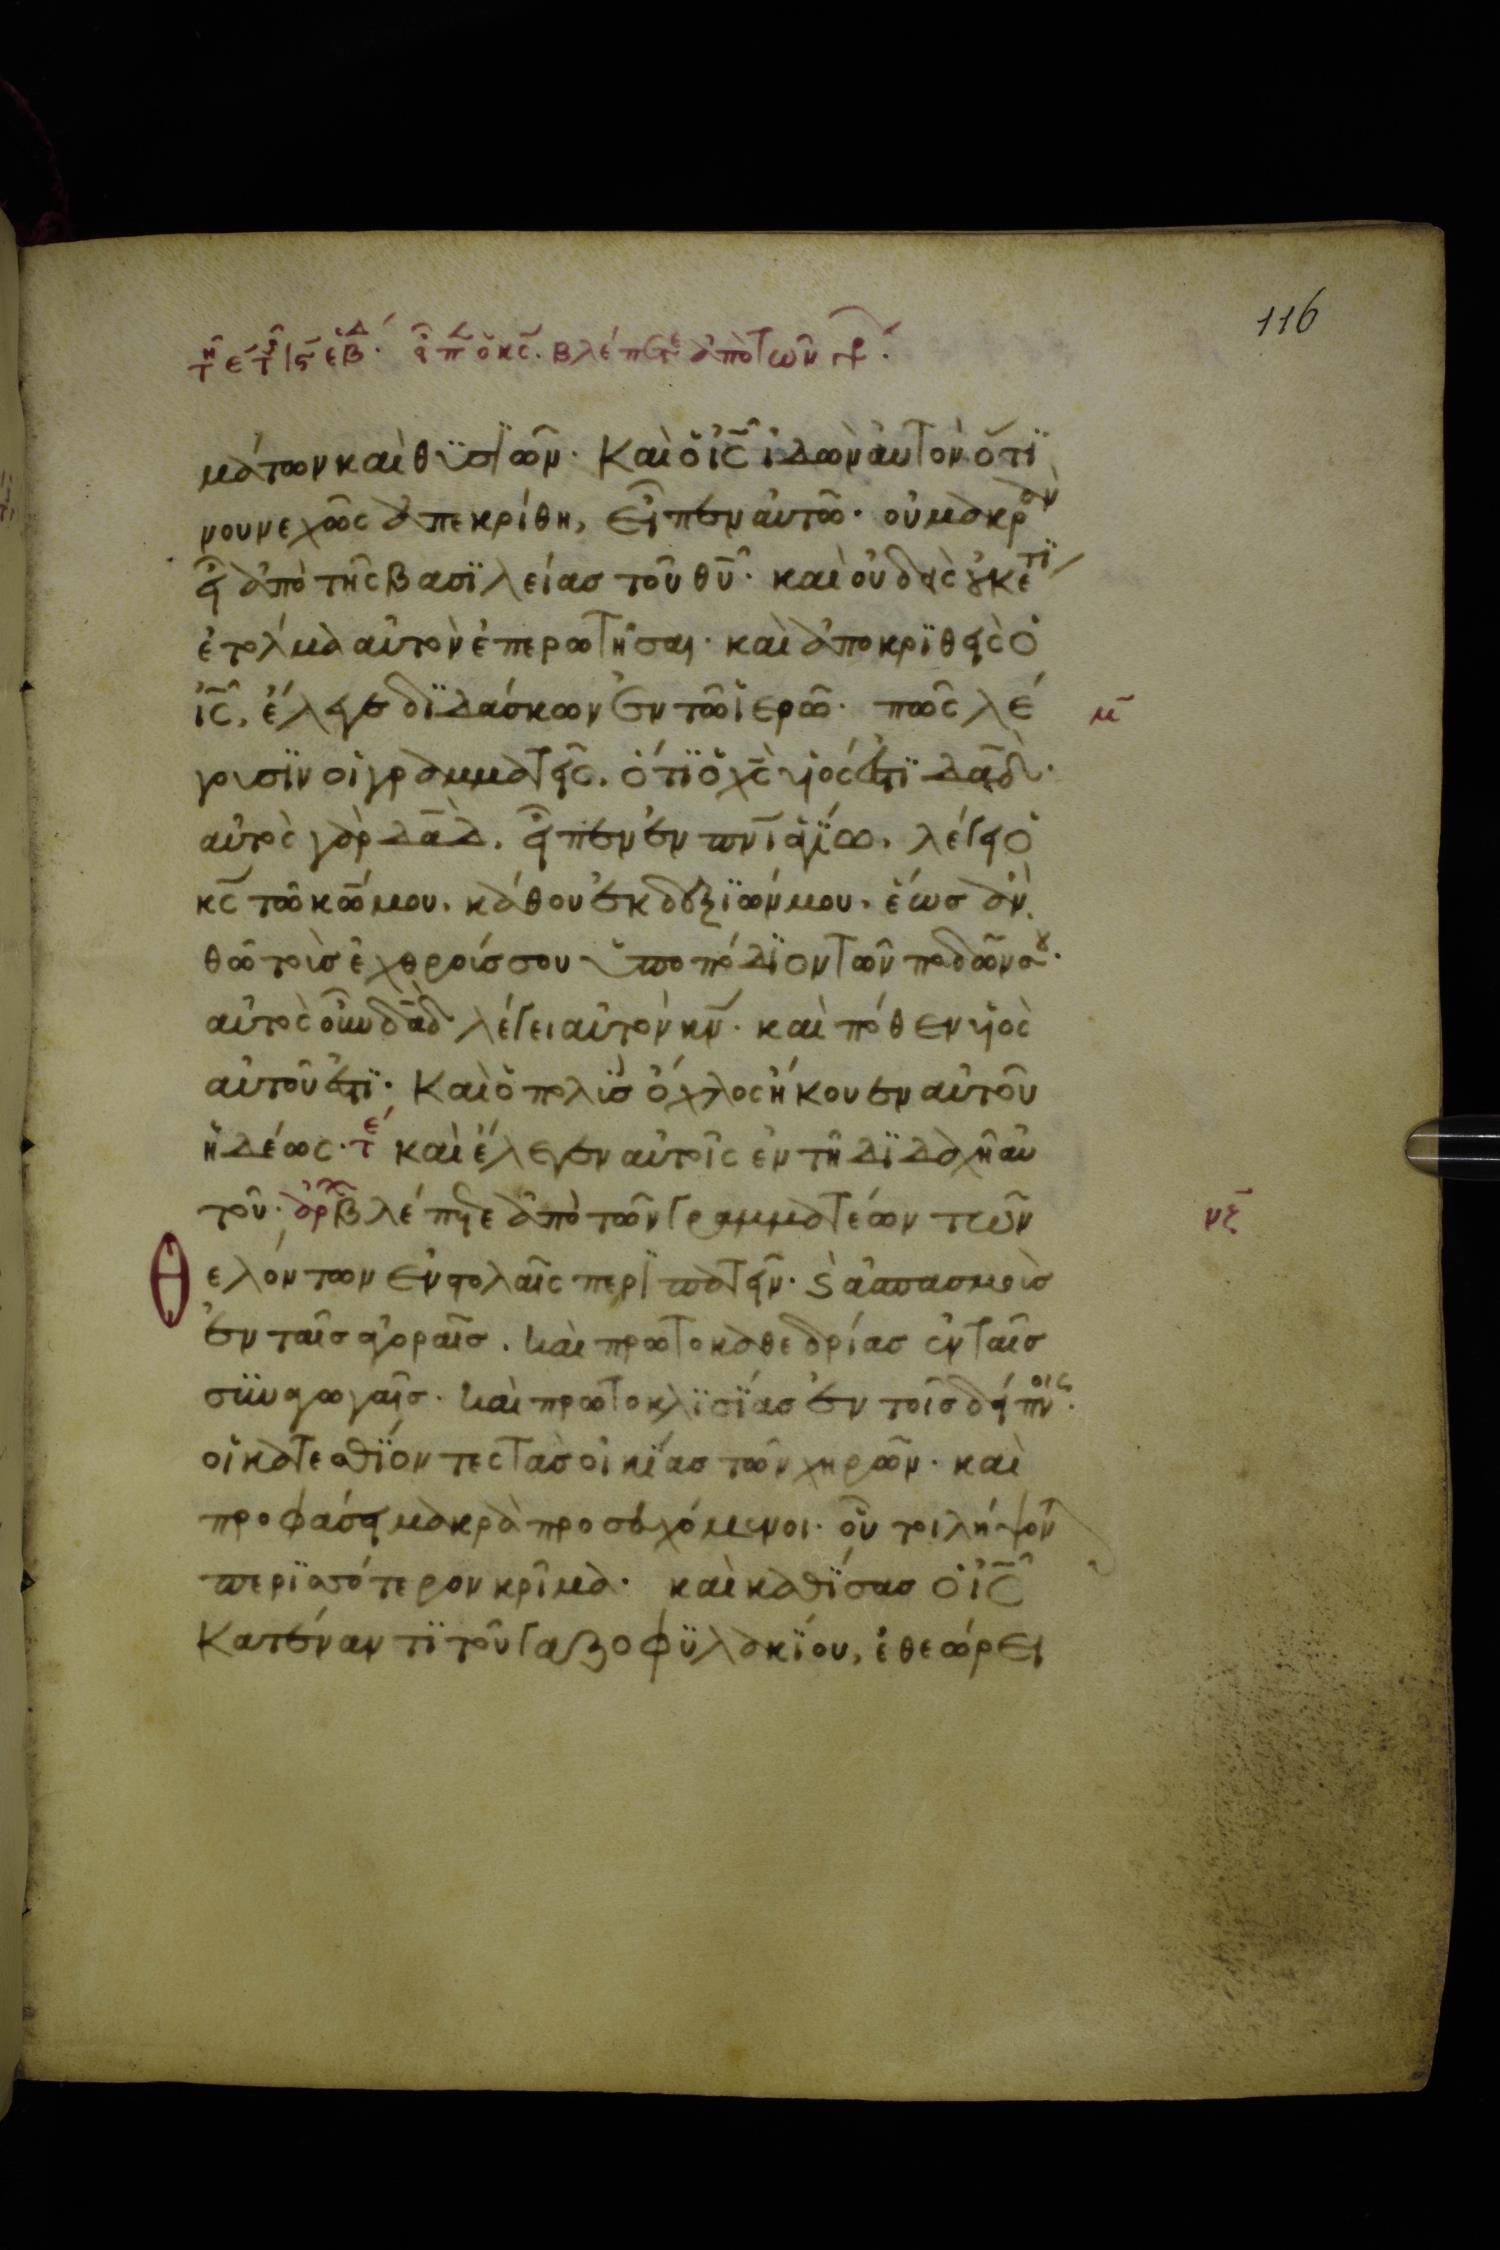 116
τῆ ε τῆς ις ἑβδ. εἶπεν ὁ κς. βλέπετε ἀπὸ τῶν γρ.
μάτων καὶ θϋσϊῶν. Καὶ ὁ ις ἰδὼν ἀυτὸν ὅτϊ
νουνεχῶς ἀπεκρίθη, εἶπεν ἀυτῶ. οὐ μακρὰν
εἶ ἀπὸ τῆς βασϊλείασ τοῦ θυ. καὶ οὐδεὶς οὐκέτϊ
ἐτόλμα αὐτὸν ἐπερωτῆσαι. καὶ ἀποκρϊθεὶς ὁ
ις, ἔλεγε δϊδάσκων ἐν τῶ ἱερῶ. πῶς λέ
μ
γουσϊν οἱ γραμματεῖς, ὅτϊ ὁ χς υἱός ἐστϊ δαδ.
αὐτὸς γὰρ δαδ, εἶπεν ἐν πνι ἁγίω, λέγει ὁ
κς τῶ κω μου, κάθου ἐκ δεξϊῶν μου, ἕωσ ἂν
θῶ τοὺσ ἐχθρούσ σου ὑποπόδϊον τῶν ποδῶν σου.
αὐτὸς οὖν δαδ λέγει αὐτὸν κν. καὶ πόθεν υἱὸς
αὐτοῦ ἐστϊ. Καὶ ὁ πολὺσ ὄχλος ἤκουεν αὐτοῦ
ἡδέως. τε καὶ ἔλεγεν αὐτοῖς ἐν τῆ δϊδαχῆ αὐ
τοῦ. ἀρχ βλέπετε ἀπὸ τῶν γραμματέων τῶν
νξ
Θελόντων ἐν στολαῖς περϊπατεῖν. καὶ ἀσπασμοὺσ
ἐν ταῖσ ἀγοραῖσ. καὶ πρωτοκαθεδρίασ ἐν ταῖσ
σϋναγωγαῖσ. καὶ πρωτοκλϊσίασ ἐν τοῖσ δείπνοις.
οἱ κατεσθϊόντες τὰσ οἰκϊίασ τῶν χηρῶν. καὶ
προφάσει μακρὰ προσευχόμενοι. οὗτοι λήψον
περϊσσότερον κρῖμα. καὶ καθϊσασ ὁ ις
Κατέναντϊ τοῦ γαζοφϋλακϊου, ἐθεώρει